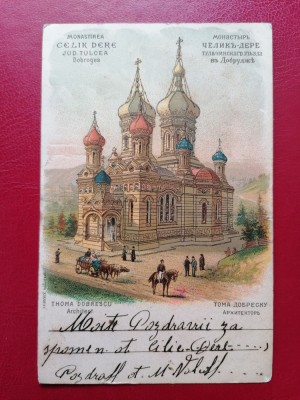 MONASTIREA
CELIK DERE
JUD. TULCEA
Dobrogea
МОНАСТЫРЬ
ЧЕЛИКЪ-ДЕРЕ
въ Добруджѣ
THOMA DOBRESCU
Architect
ТОМА ДОБРЕСКУ
Архитекторъ
Pozdravii za
spomen ot Celic Dere
Pozdraff ot M